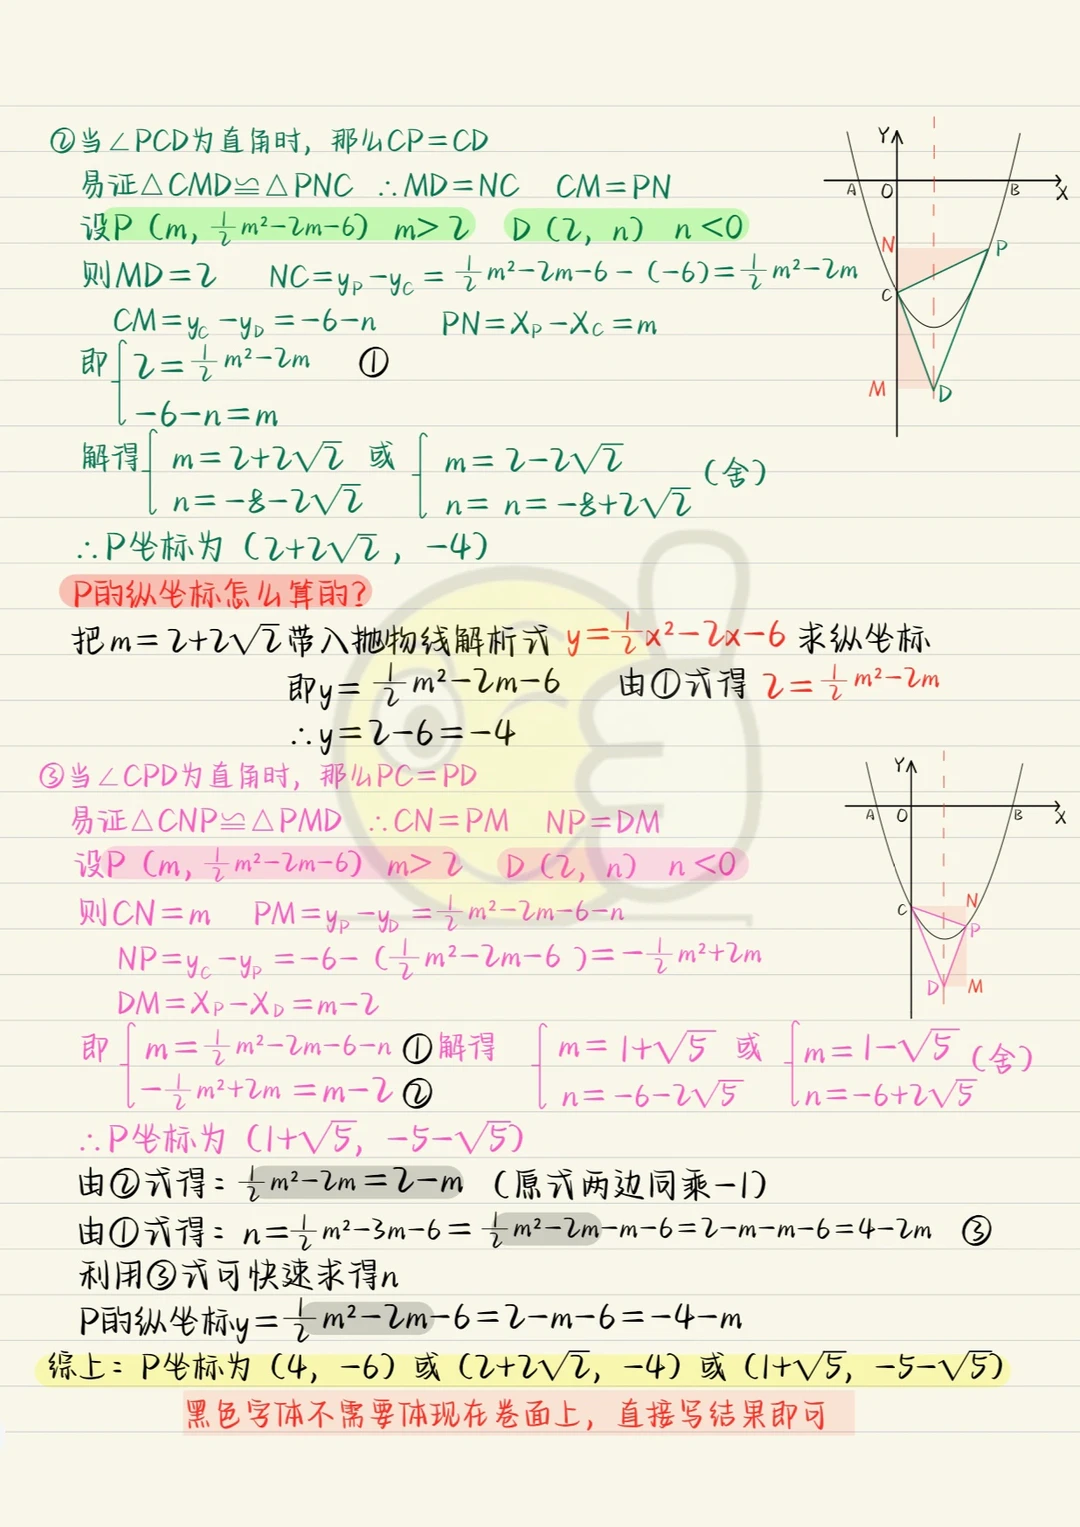 ②当∠PCD为直角时，那么CP=CD
易证△CMD≌△PNC ∴MD=NC CM=PN
设P（m, ½m²-2m-6）m>2 D（2, n）n<0
则MD=2 NC=y_P-y_C=½m²-2m-6-(-6)=½m²-2m
CM=y_C-y_D=-6-n PN=X_P-X_C=m
即{2=½m²-2m ①
-6-n=m
解得{m=2+2√2 或 {m=2-2√2 （舍）
n=-8-2√2 n= n=-8+2√2
∴P坐标为（2+2√2，-4）
P的纵坐标怎么算的?
把m=2+2√2带入抛物线解析式 y=½x²-2x-6 求纵坐标
即y=½m²-2m-6 由①式得 2=½m²-2m
∴y=2-6=-4
Y
A O B X
N P
C
M D
③当∠CPD为直角时，那么PC=PD
易证△CNP≌△PMD ∴CN=PM NP=DM
设P（m, ½m²-2m-6）m>2 D（2, n）n<0
则CN=m PM=y_P-y_D=½m²-2m-6-n
NP=y_C-y_P=-6-(½m²-2m-6)=-½m²+2m
DM=X_P-X_D=m-2
即{m=½m²-2m-6-n ①解得 {m=1+√5 或 {m=1-√5（舍）
-½m²+2m=m-2 ② n=-6-2√5 n=-6+2√5
∴P坐标为（1+√5, -5-√5）
Y
A O B X
C N
P
D M
由②式得：½m²-2m=2-m （原式两边同乘-1）
由①式得：n=½m²-3m-6=½m²-2m-m-6=2-m-m-6=4-2m ③
利用③式可快速求得n
P的纵坐标y=½m²-2m-6=2-m-6=-4-m
综上：P坐标为（4，-6）或（2+2√2，-4）或（1+√5，-5-√5）
黑色字体不需要体现在卷面上，直接写结果即可